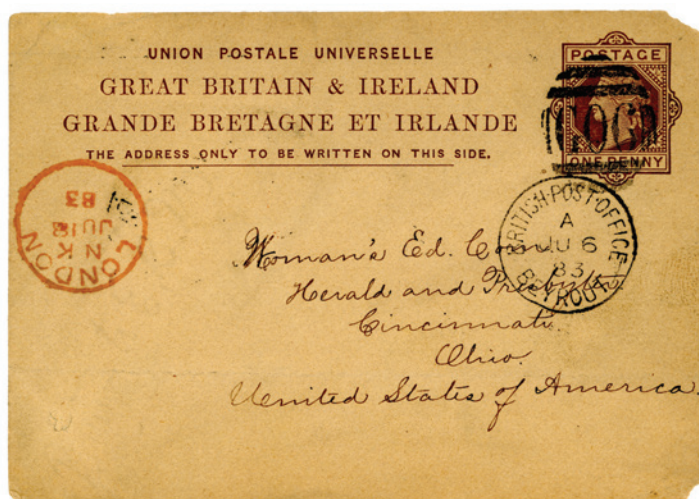 UNION POSTALE UNIVERSELLE
GREAT BRITAIN & IRELAND
GRANDE BRETAGNE ET IRLANDE
THE ADDRESS ONLY TO BE WRITTEN ON THIS SIDE.
POSTAGE
ONE PENNY
BRITISH·POST·OFFICE
A
JU 6
83
BEYROUT
LONDON
N K
JU18
83
Woman's Ed.
Herald and
Cincinnati
Ohio.
United States of America.